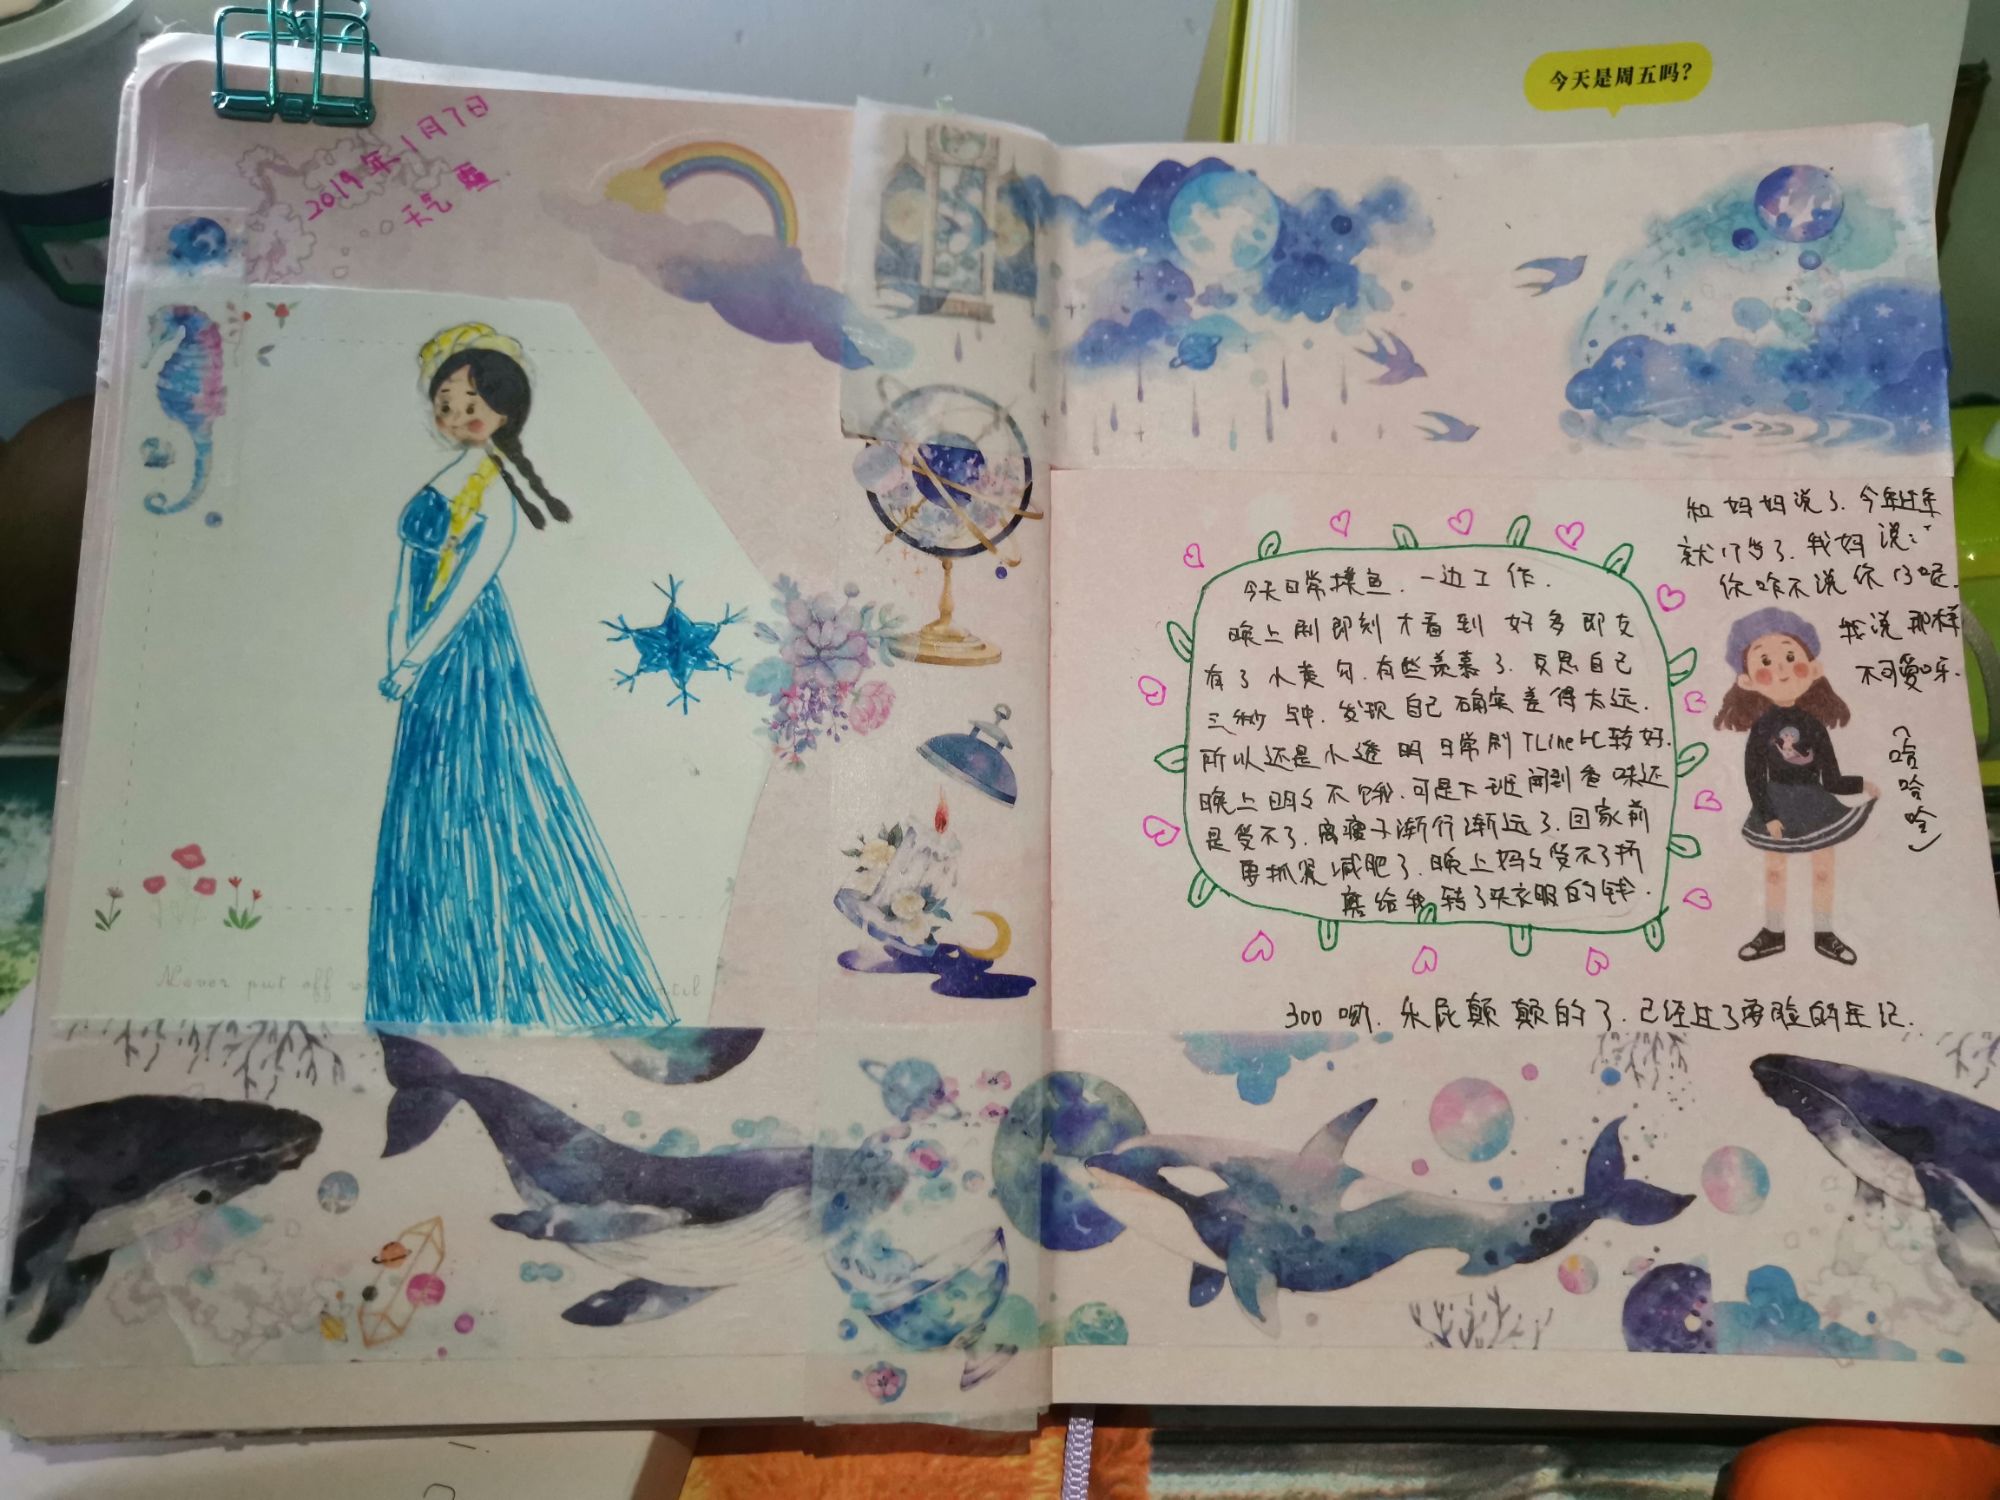 今天是周五吗?
2019年1月7日
天气
Never put off
til
和妈妈说了.今年过年
就17岁了.我妈说:
你咋不说你 呢.
我说那样
不可爱呀.
(哈哈哈)
今天日常摸鱼.一边工作.
晚上刷即刻才看到好多即友
有了小黄勾.有些羡慕了.反思自己
三秒钟.发现自己确实差得太远.
所以还是小透明日常刷TLine比较好.
晚上明明不饿.可是下班闻到香味还
是受不了.离瘦子渐行渐远了.回家前
要抓紧减肥了.晚上妈妈受不了折
磨给我转了买衣服的钱.
300呦.乐屁颠颠的了.已经过了要脸的年纪.